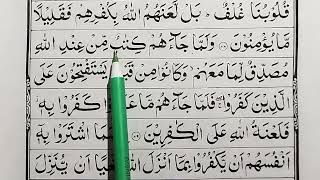 قُلُوْبُنَا غُلْفٌ ؕ بَلْ لَّعَنَهُمُ اللّٰهُ بِكُفْرِهِمْ فَقَلِيْلًا
مَّا يُؤْمِنُوْنَ ۝ وَلَمَّا جَآءَهُمْ كِتٰبٌ مِّنْ عِنْدِ اللّٰهِ
مُصَدِّقٌ لِّمَا مَعَهُمْ ۙ وَكَانُوْا مِنْ يَسْتَفْتِحُوْنَ عَلَى
الَّذِيْنَ كَفَرُوْا ۚ فَلَمَّا جَآءَهُمْ مَّا كَفَرُوْا بِهٖ
فَلَعْنَةُ اللّٰهِ عَلَى الْكٰفِرِيْنَ ۝ اشْتَرَوْا بِهٖۤ
اَنْفُسَهُمْ اَنْ يَّكْفُرُوْا بِمَاۤ اَنْزَلَ اللّٰهُ اَنْ يُّنَزِّلَ